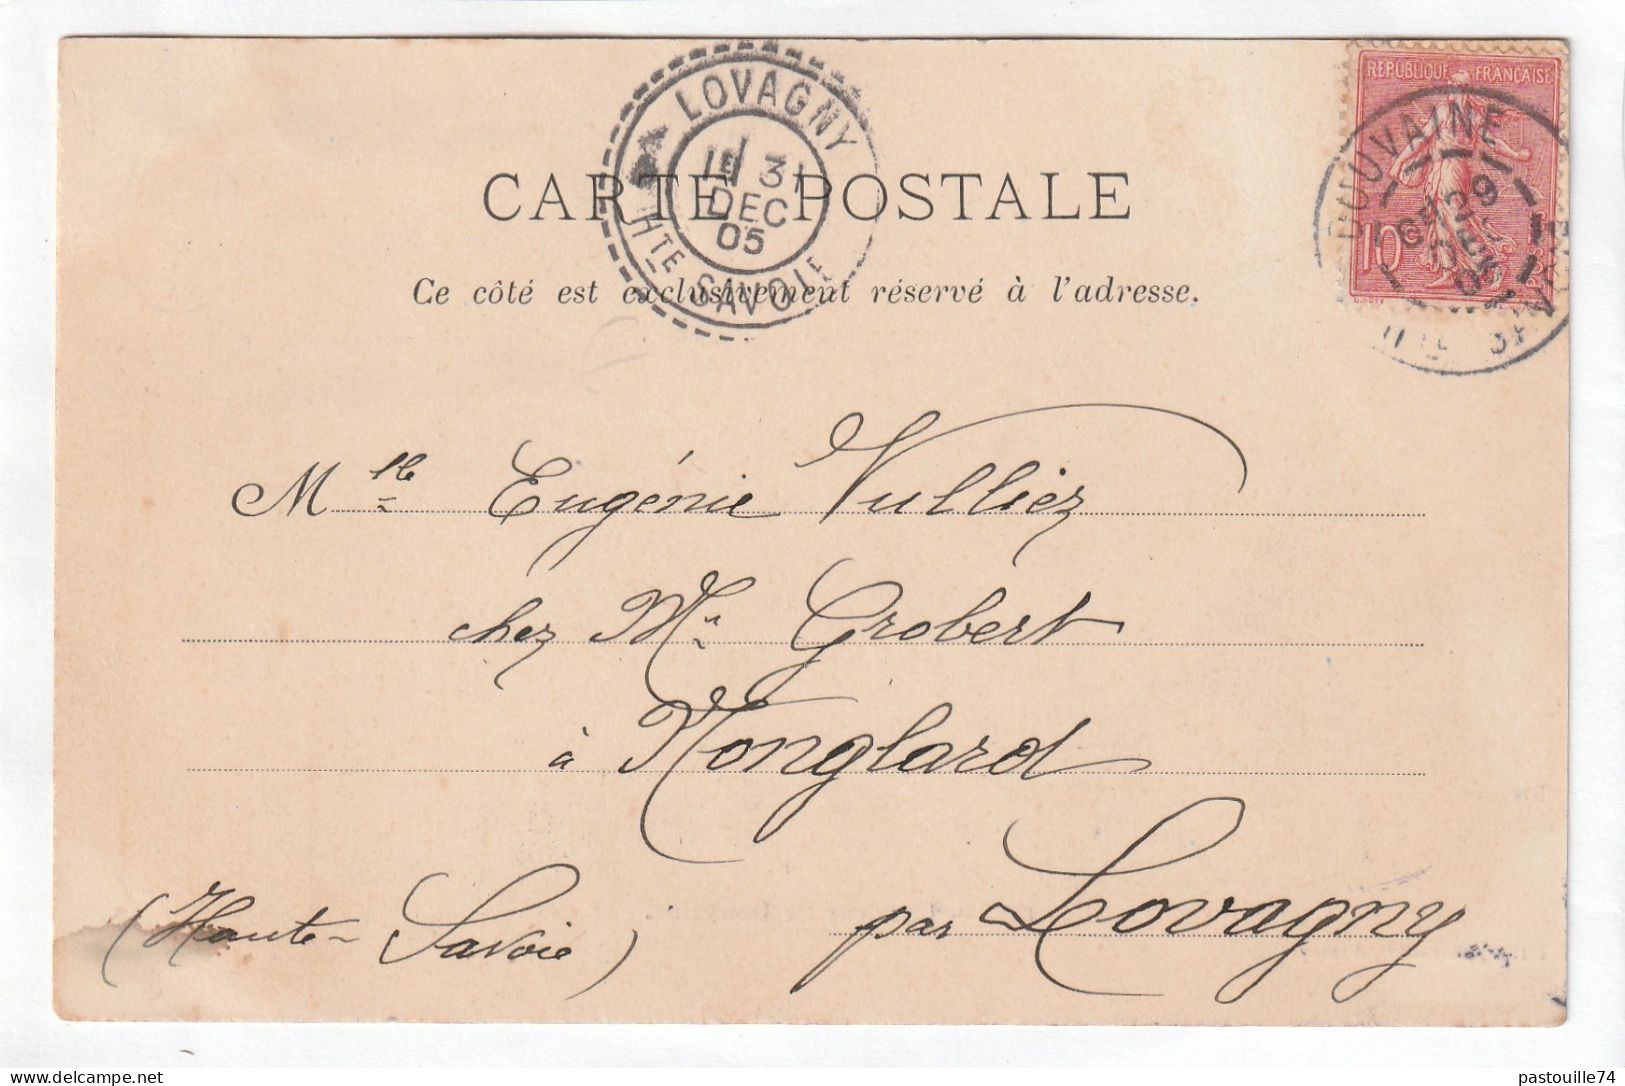 LOVAGNY
1E 31
DEC
05
HTE SAVOIE
REPUBLIQUE FRANÇAISE
10
DOUVAINE
CARTE POSTALE
Ce côté est exclusivement réservé à l'adresse.
Mlle Eugénie Vulliez
chez Mr Grobert
à Monglard
par Lovagny
(Haute-Savoie)
pastouille74